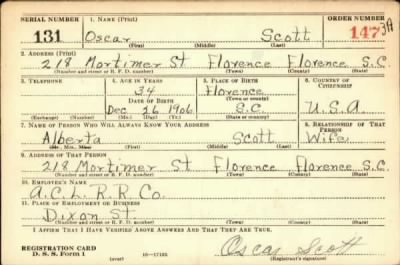 SERIAL NUMBER 1. NAME (Print) ORDER NUMBER
131 Oscar Scott 1473A
(First) (Middle) (Last)
2. ADDRESS (Print)
218 Mortimer St Florence Florence S.C.
(Number and street or R. F. D. number) (Town) (County) (State)
3. TELEPHONE 4. AGE IN YEARS 5. PLACE OF BIRTH 6. COUNTRY OF CITIZENSHIP
34 Florence
DATE OF BIRTH (Town or county)
Dec 26 1906 S.C. U.S.A.
(Exchange) (Number) (Mo.) (Day) (Yr.) (State or country)
7. NAME OF PERSON WHO WILL ALWAYS KNOW YOUR ADDRESS 8. RELATIONSHIP OF THAT PERSON
Alberta Scott Wife
(Mr., Mrs., Miss) (First) (Middle) (Last)
9. ADDRESS OF THAT PERSON
218 Mortimer St Florence Florence S.C.
(Number and street or R. F. D. number) (Town) (County) (State)
10. EMPLOYER'S NAME
A.C.L. R.R. Co.
11. PLACE OF EMPLOYMENT OR BUSINESS
Dixon St.
(Number and street or R. F. D. number) (Town) (County) (State)
I AFFIRM THAT I HAVE VERIFIED ABOVE ANSWERS AND THAT THEY ARE TRUE.
REGISTRATION CARD
D. S. S. Form 1 (over) 16—17105 Oscar Scott
(Registrant's signature)